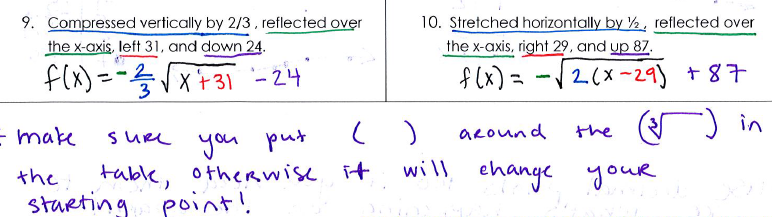 9. Compressed vertically by 2/3, reflected over
the x-axis, left 31, and down 24.
f(x) = -2/3 √(x+31) - 24
10. Stretched horizontally by ½, reflected over
the x-axis, right 29, and up 87.
f(x) = -√(2(x-29)) + 87
make sure you put ( ) around the (∛ ) in
the table, otherwise it will change your
starting point!